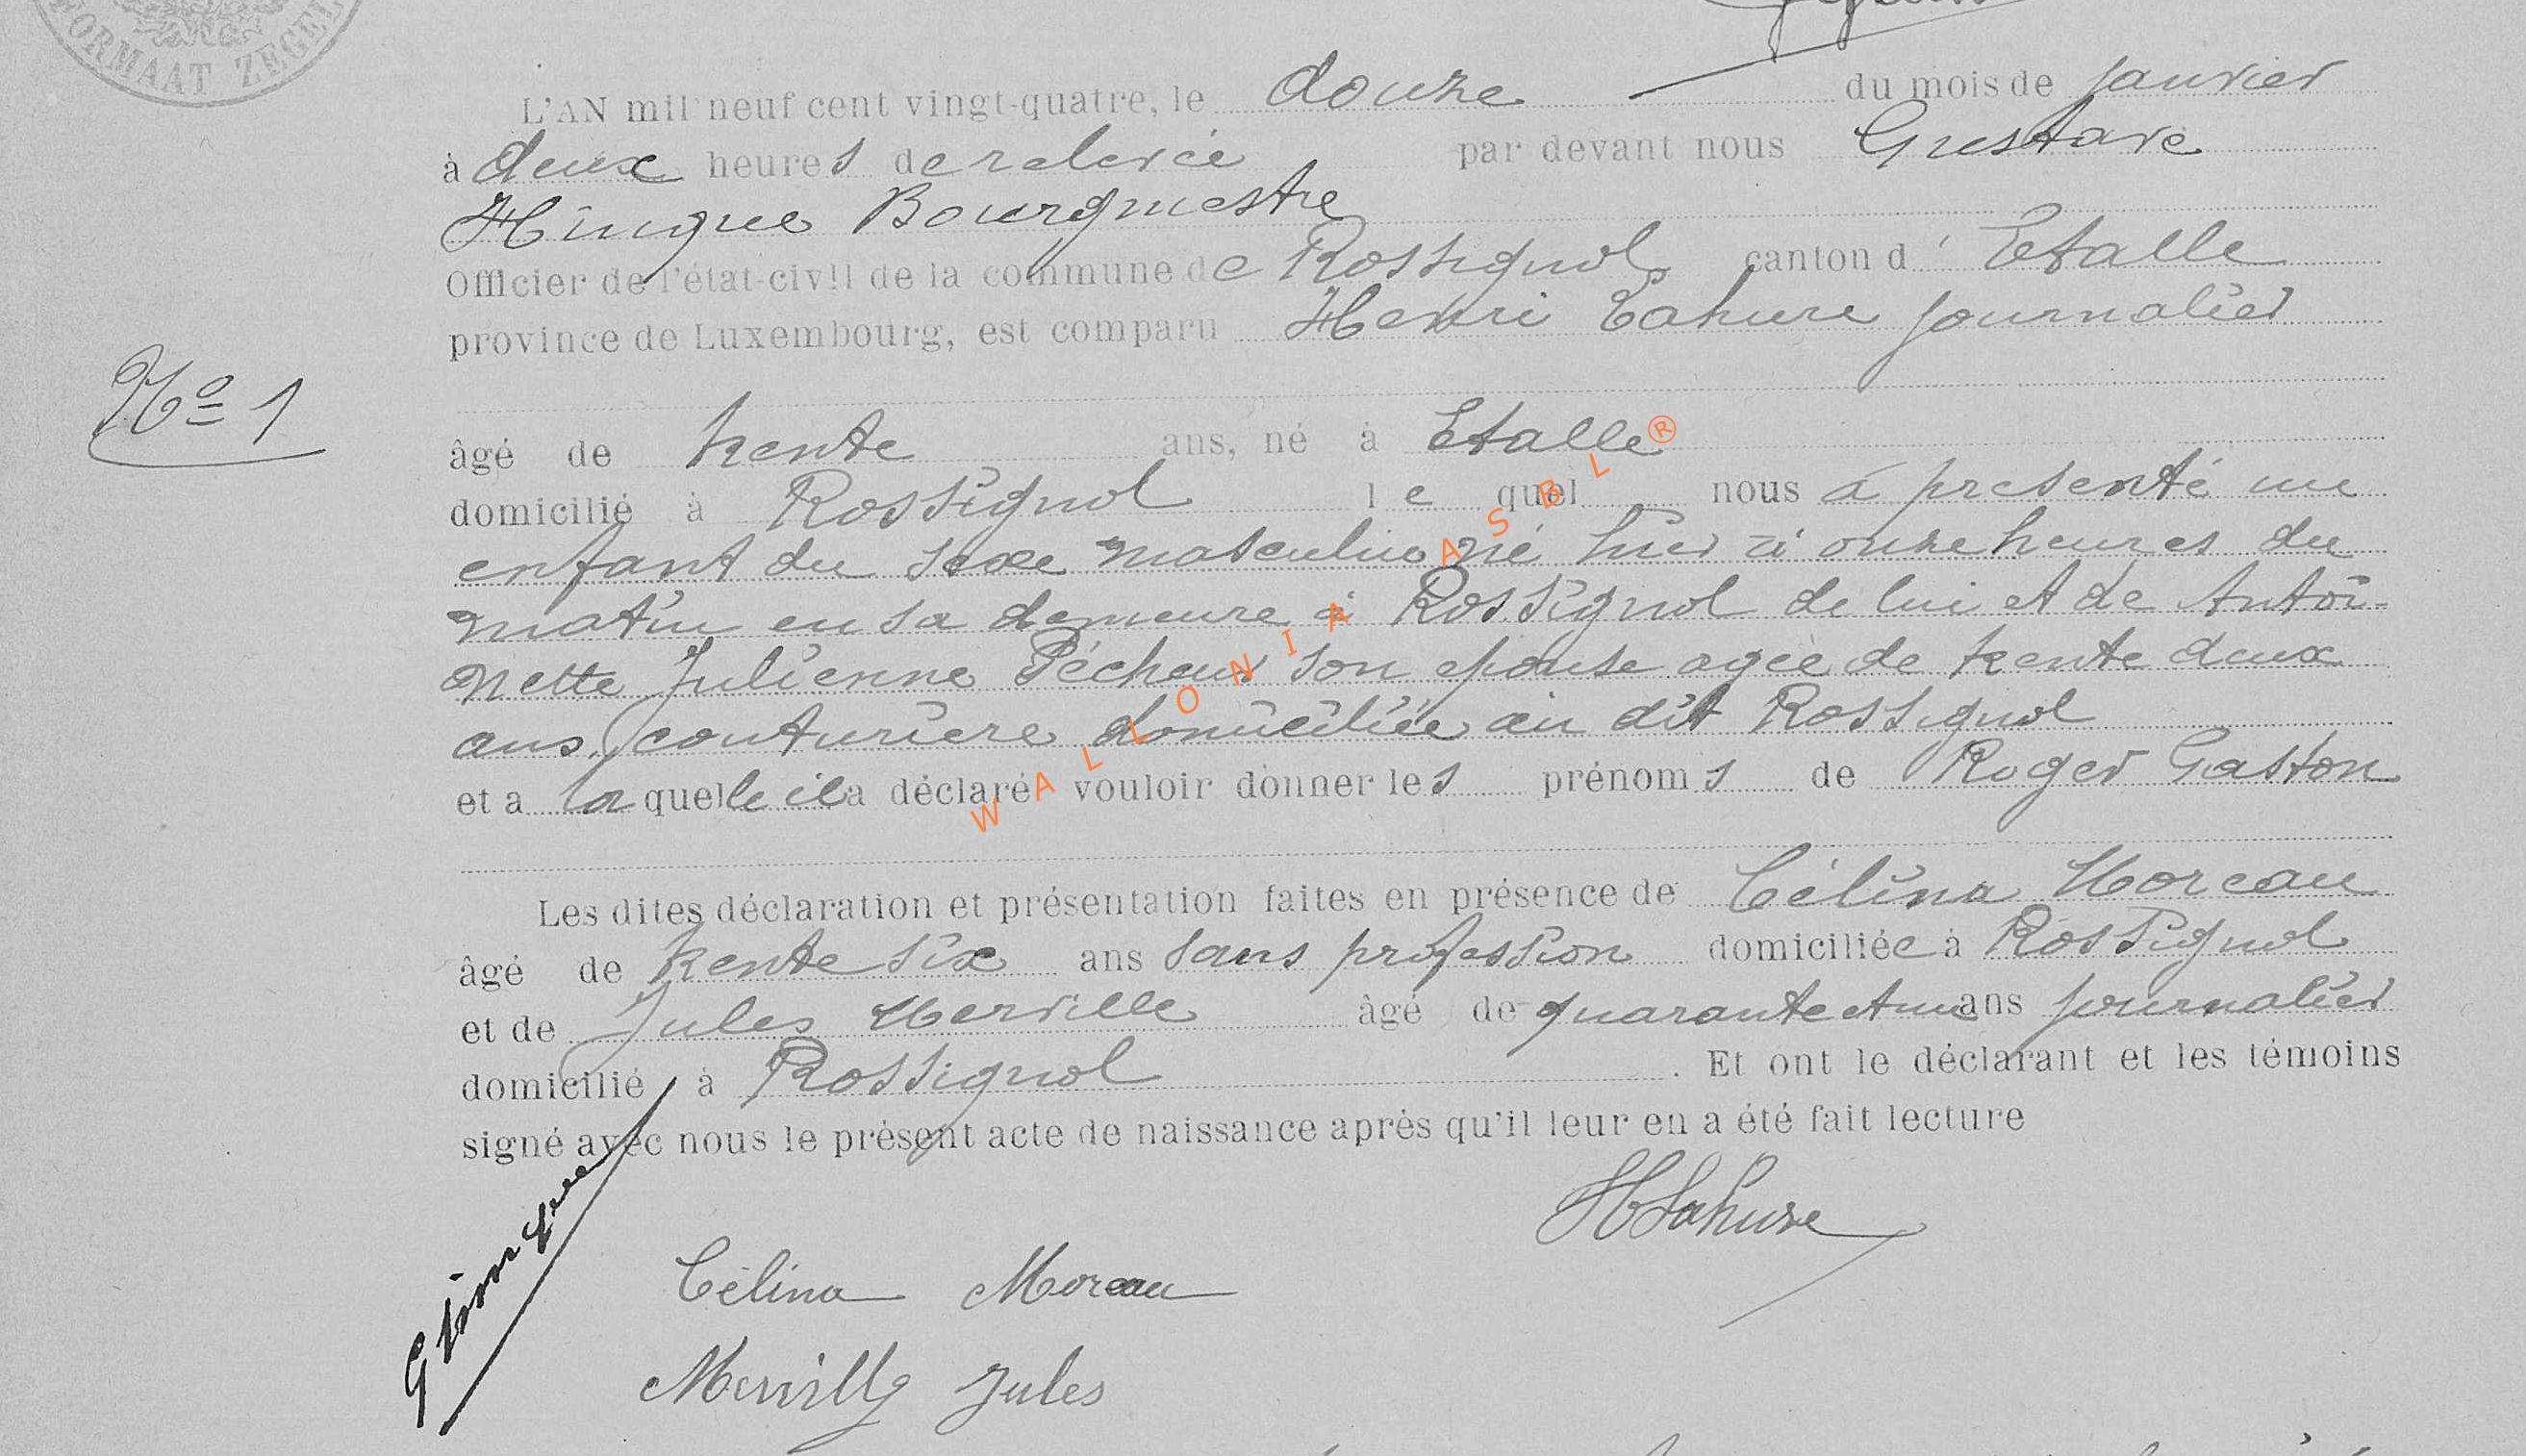 FORMAAT ZEGEL
L'AN mil neuf cent vingt-quatre, le douze du mois de janvier
à deux heures de relevée par devant nous Gustave
Hinque Bourgmestre
Officier de l'état-civil de la commune de Rossignol canton d' Etalle
province de Luxembourg, est comparu Henri Lahure journalier
No 1
âgé de trente ans, né à Etalle
domicilié à Rossignol le quel nous a presenté un
enfant du sexe masculin né hier à onze heures du
matin en sa demeure à Rossignol de lui et de Antoi-
nette Julienne Pécheur son epouse agée de trente deux
ans, couturière domiciliée au dit Rossignol
et a la quelle il a déclaré vouloir donner les prénoms de Roger Gaston
WALLONIA ASBL ®
Les dites déclaration et présentation faites en présence de Célina Moreau
âgé de trente six ans sans profession domiciliée à Rossignol
et de Jules Merville âgé de quarante et un ans journalier
domicilié à Rossignol . Et ont le déclarant et les témoins
signé avec nous le présent acte de naissance après qu'il leur en a été fait lecture
HLahure
G Hinque
Célina Moreau
Merville Jules